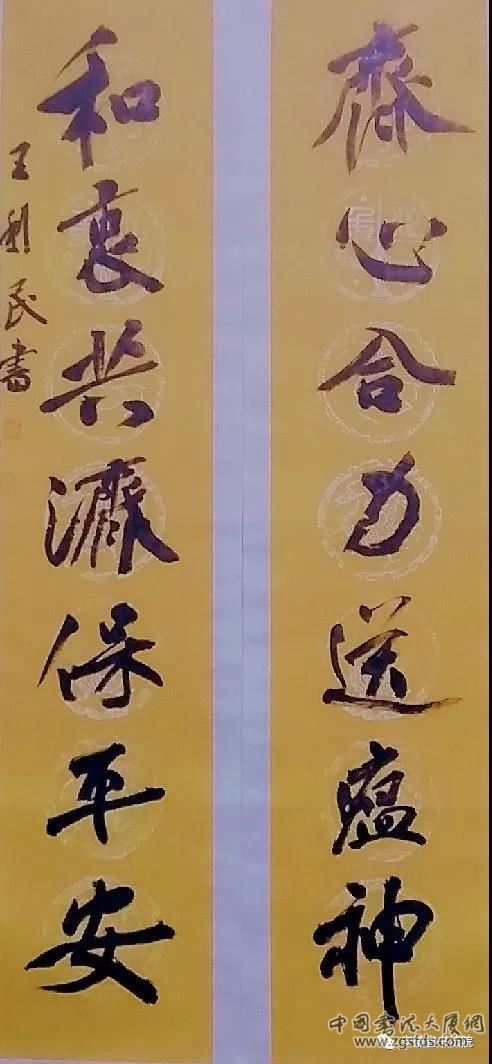 齊心合力送瘟神
和衷共濟保平安
王利民書
中国书法大厦網
www.zgsfds.com